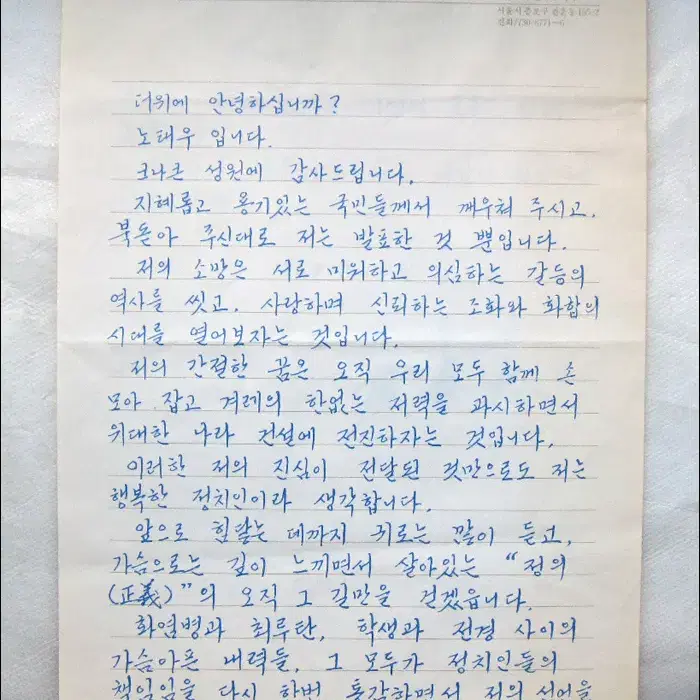 서울시 종로구
전화/730-6771~6
더위에 안녕하십니까?
노태우 입니다.
크나큰 성원에 감사드립니다.
지혜롭고 용기있는 국민들께서 깨우쳐 주시고,
북돋아 주신대로 저는 발표한 것 뿐입니다.
저의 소망은 서로 미워하고 의심하는 갈등의
역사를 씻고, 사랑하며 신뢰하는 조화와 화합의
시대를 열어보자는 것입니다.
저의 간절한 꿈은 오직 우리 모두 함께 손
모아 잡고 겨레의 한없는 저력을 과시하면서
위대한 나라 건설에 전진하자는 것입니다.
이러한 저의 진심이 전달된 것만으로도 저는
행복한 정치인이라 생각합니다.
앞으로 힘닿는 데까지 귀로는 많이 듣고,
가슴으로는 깊이 느끼면서 살아있는 “정의
(正義)”의 오직 그 길만을 걷겠읍니다.
화염병과 최루탄, 학생과 전경 사이의
가슴아픈 내력들, 그 모두가 정치인들의
책임임을 다시 한번 통감하면서 저의